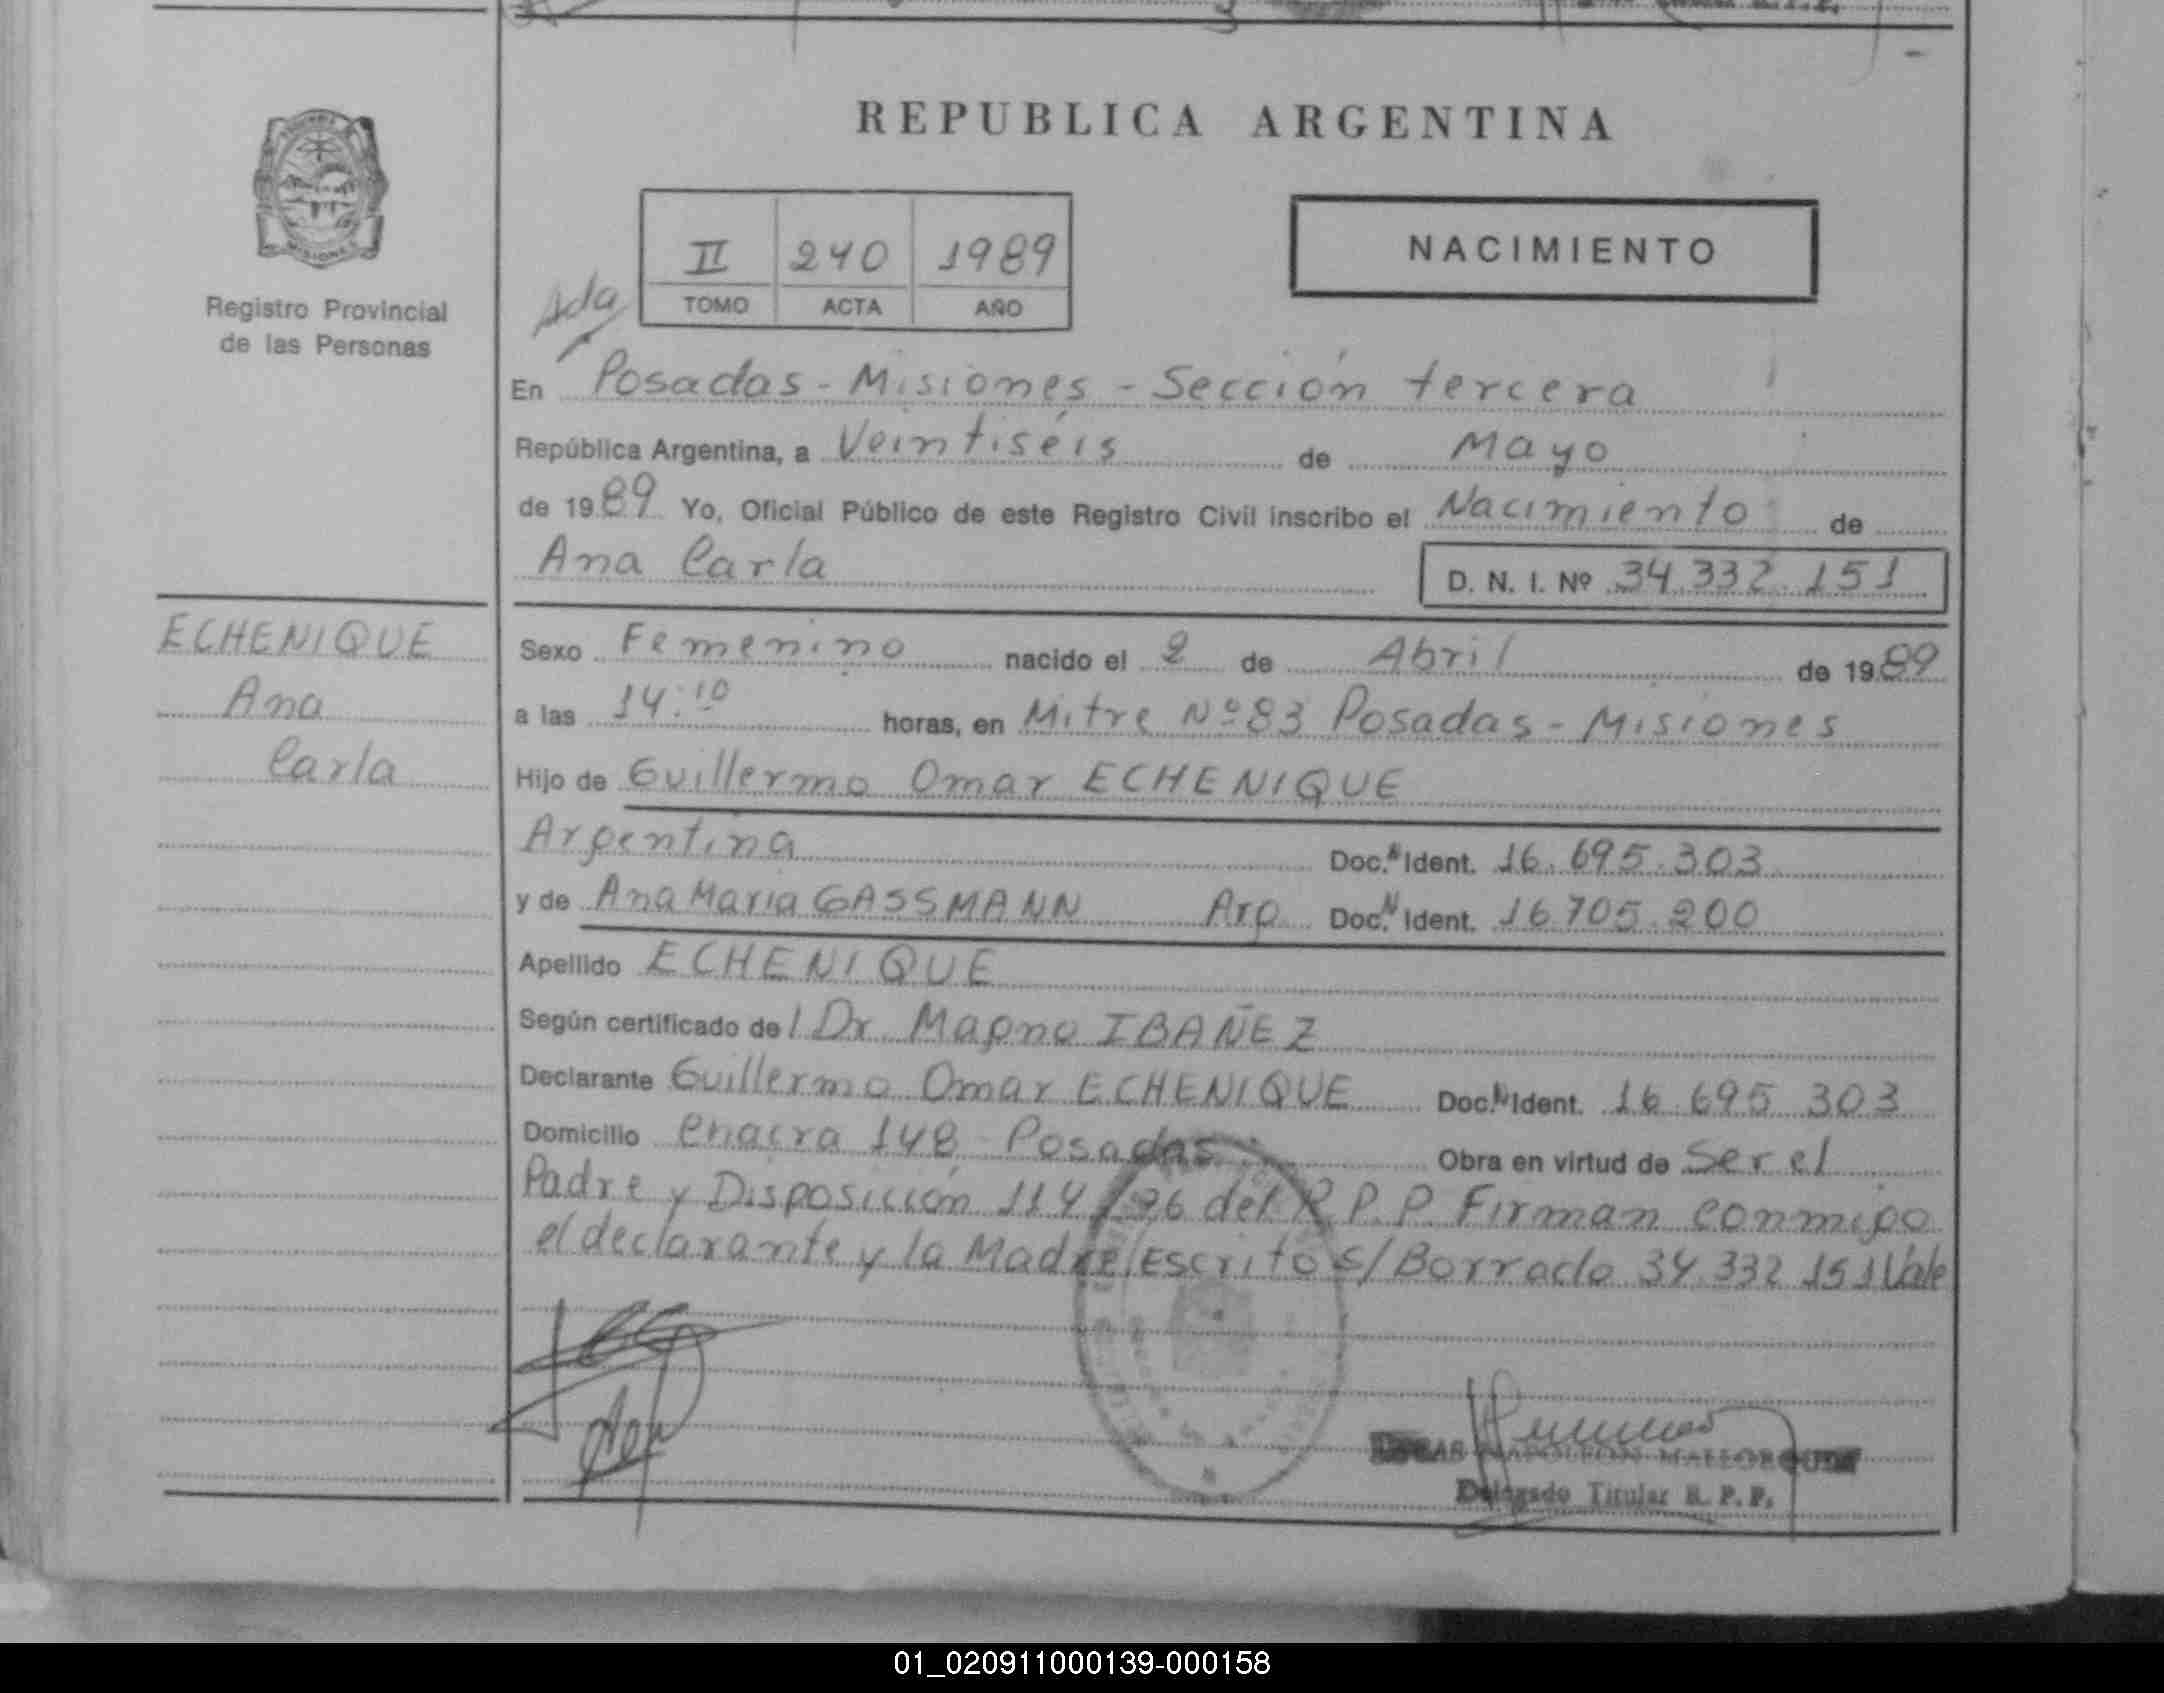 REPUBLICA ARGENTINA
II 240 1989
TOMO ACTA AÑO
NACIMIENTO
Registro Provincial
de las Personas
En Posadas - Misiones - Sección tercera
República Argentina, a Veintiséis de Mayo
de 1989 Yo, Oficial Público de este Registro Civil inscribo el Nacimiento de
Ana Carla D. N. I. Nº 34.332.151
ECHENIQUE
Ana
Carla
Sexo Femenino nacido el 2 de Abril de 1989
a las 14:10 horas, en Mitre Nº 83 Posadas - Misiones
Hijo de Guillermo Omar ECHENIQUE
Argentina Doc. N Ident. 16.695.303
y de Ana Maria GASSMANN Arg. Doc. N Ident. 16.705.200
Apellido ECHENIQUE
Según certificado del Dr. Magno IBAÑEZ
Declarante Guillermo Omar ECHENIQUE Doc. N Ident. 16.695.303
Domicilio 148 Posadas Obra en virtud de Ser el
Padre y Disposición 114/ del R.P.P. Firman conmigo
el declarante y la Madre/Escrito s/Borrado 34.332.151 Vale
NAPOLEON
Delegado Titular R. P. P.
01_020911000139-000158